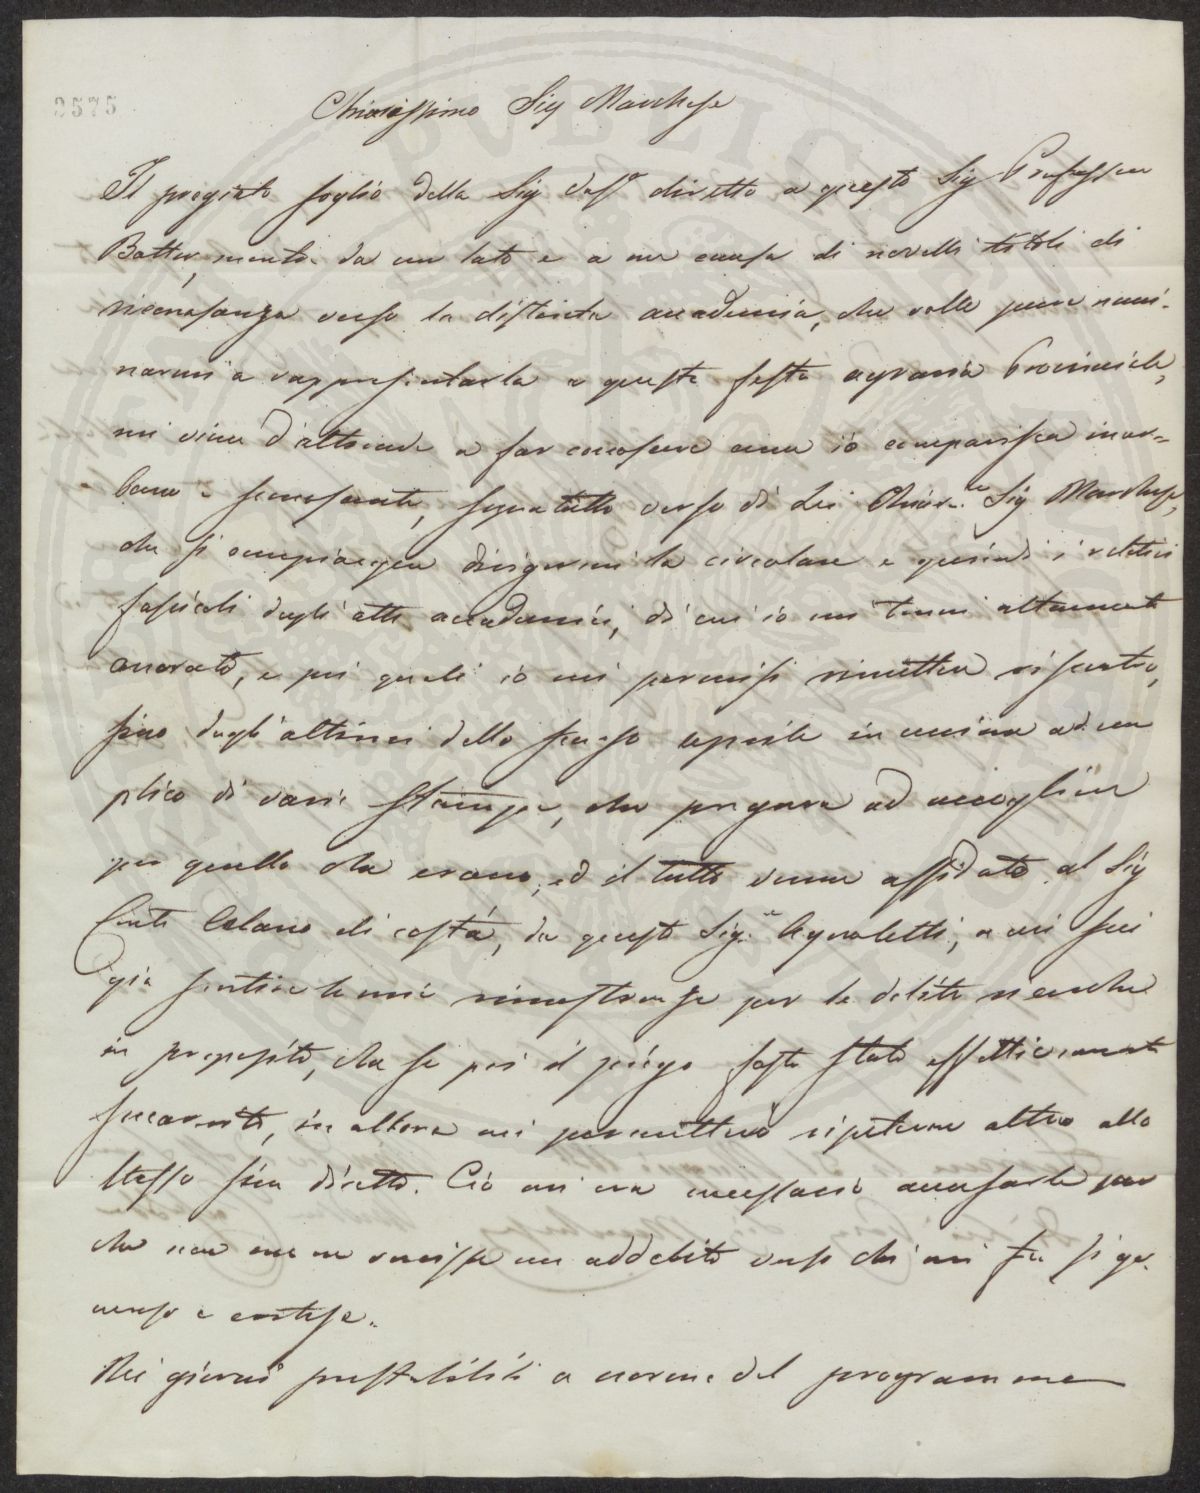 3575
Chiarissimo Sig Marchese
Il pregiato foglio della Sig Vosª diretto a questo Sig Professore
Botter, mentre da un lato è a me causa di novelli titoli di
riconosanza verso la distinta accademia, che volle pure nomi-
narmi a rappresentarla a questa festa agraria Provinciale,
mi viene d'altronde a far conoscere come io comparisca inur-
bano e sconoscente, sopratutto verso di Lei Chiar.mo Sig Marchese,
che si compiacque dirigermi la circolare e quindi i relativi
fascicoli degli atti accademici, di cui io mi tenni altamente
onorato, e pei quali io mi permisi rimettere riscontro,
sino dagli ultimi dello scorso aprile in unione ad un
plico di varie stampe, che pregava ad accogliere
per quello che erano, ed il tutto venne affidato al Sig
Conte di costà, da questo Sig.r Agnoletti, a cui feci
già sentire le mie rimostranze per le debite ricerche
in proposito, che se poi il piego fosse stato effettivamente
smarrito, in allora mi permetterò ripeterne altro allo
stesso fine diretto. Ciò mi era necessario accusarle per
che non me ne venisse un addebito verso chi mi fu sì ge-
neroso e cortese.
Nei giorni prestabiliti a norma del programma
PVBLICA